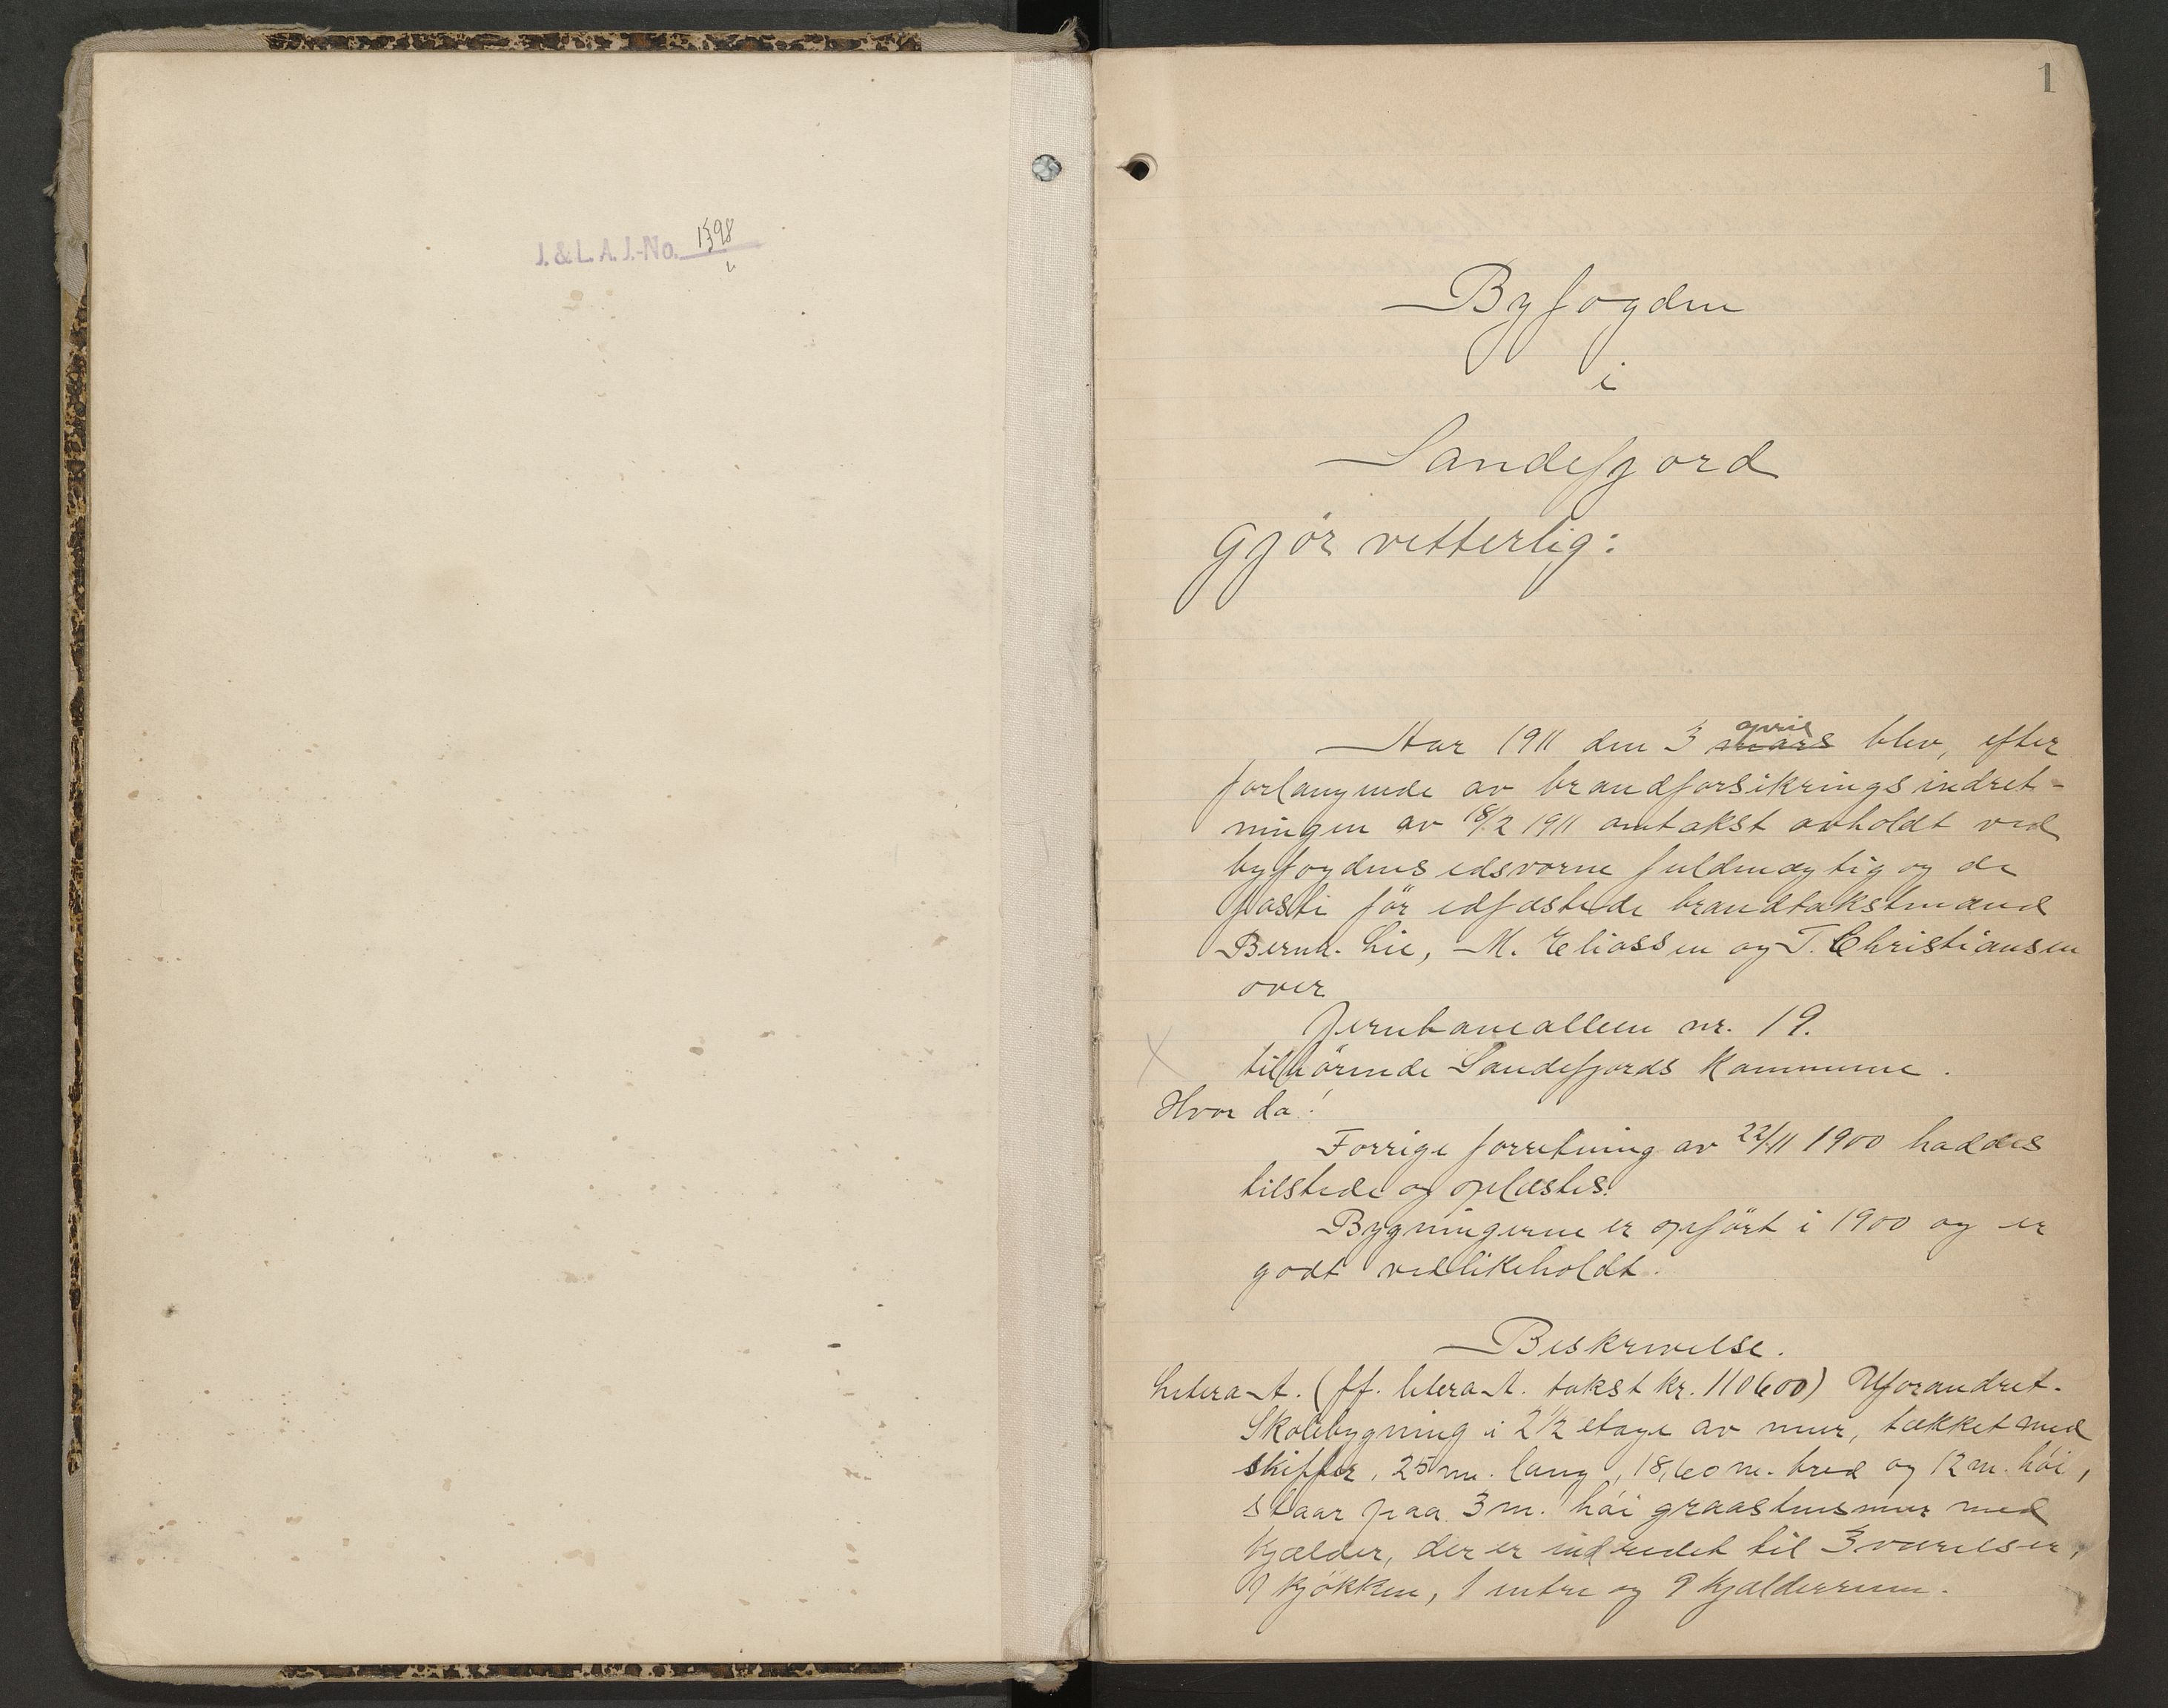 J. & L. A. J.-No. 1398
1
Byfogden
i
Sandefjord
gjör vitterlig:
Aar 1911 den 3 mars april blev, efter
forlangende av brandforsikringsindret-
ningen av 18/2 1911 omtakst avholdt ved
byfogdens edsvorne fuldmægtig og de
faste för edfæstede brandtakstmænd
Bernh. Lie, M. Eliassen og T. Christiansen
over
Jernbanealleen nr. 19.
tilhörende Sandefjords Kommune.
Hvor da!
Forrige forretning av 22/11 1900 haddes
tilstede og oplæstes.
Bygningerne er opfört i 1900 og er
godt vedlikeholdt.
Beskrivelse.
Litera A. (ff. litera A. takst kr. 110600) Uforandret.
Skolebygning i 2 1/2 etage av mur, tækket med
skiffer, 25 m. lang, 18,60 m. bred og 12 m. höi,
staar paa 3 m. höi graastensmur med
Kjælder, der er indredet til 3 værelser,
1 kjökken, 1 entre og 9 kjælderrum.